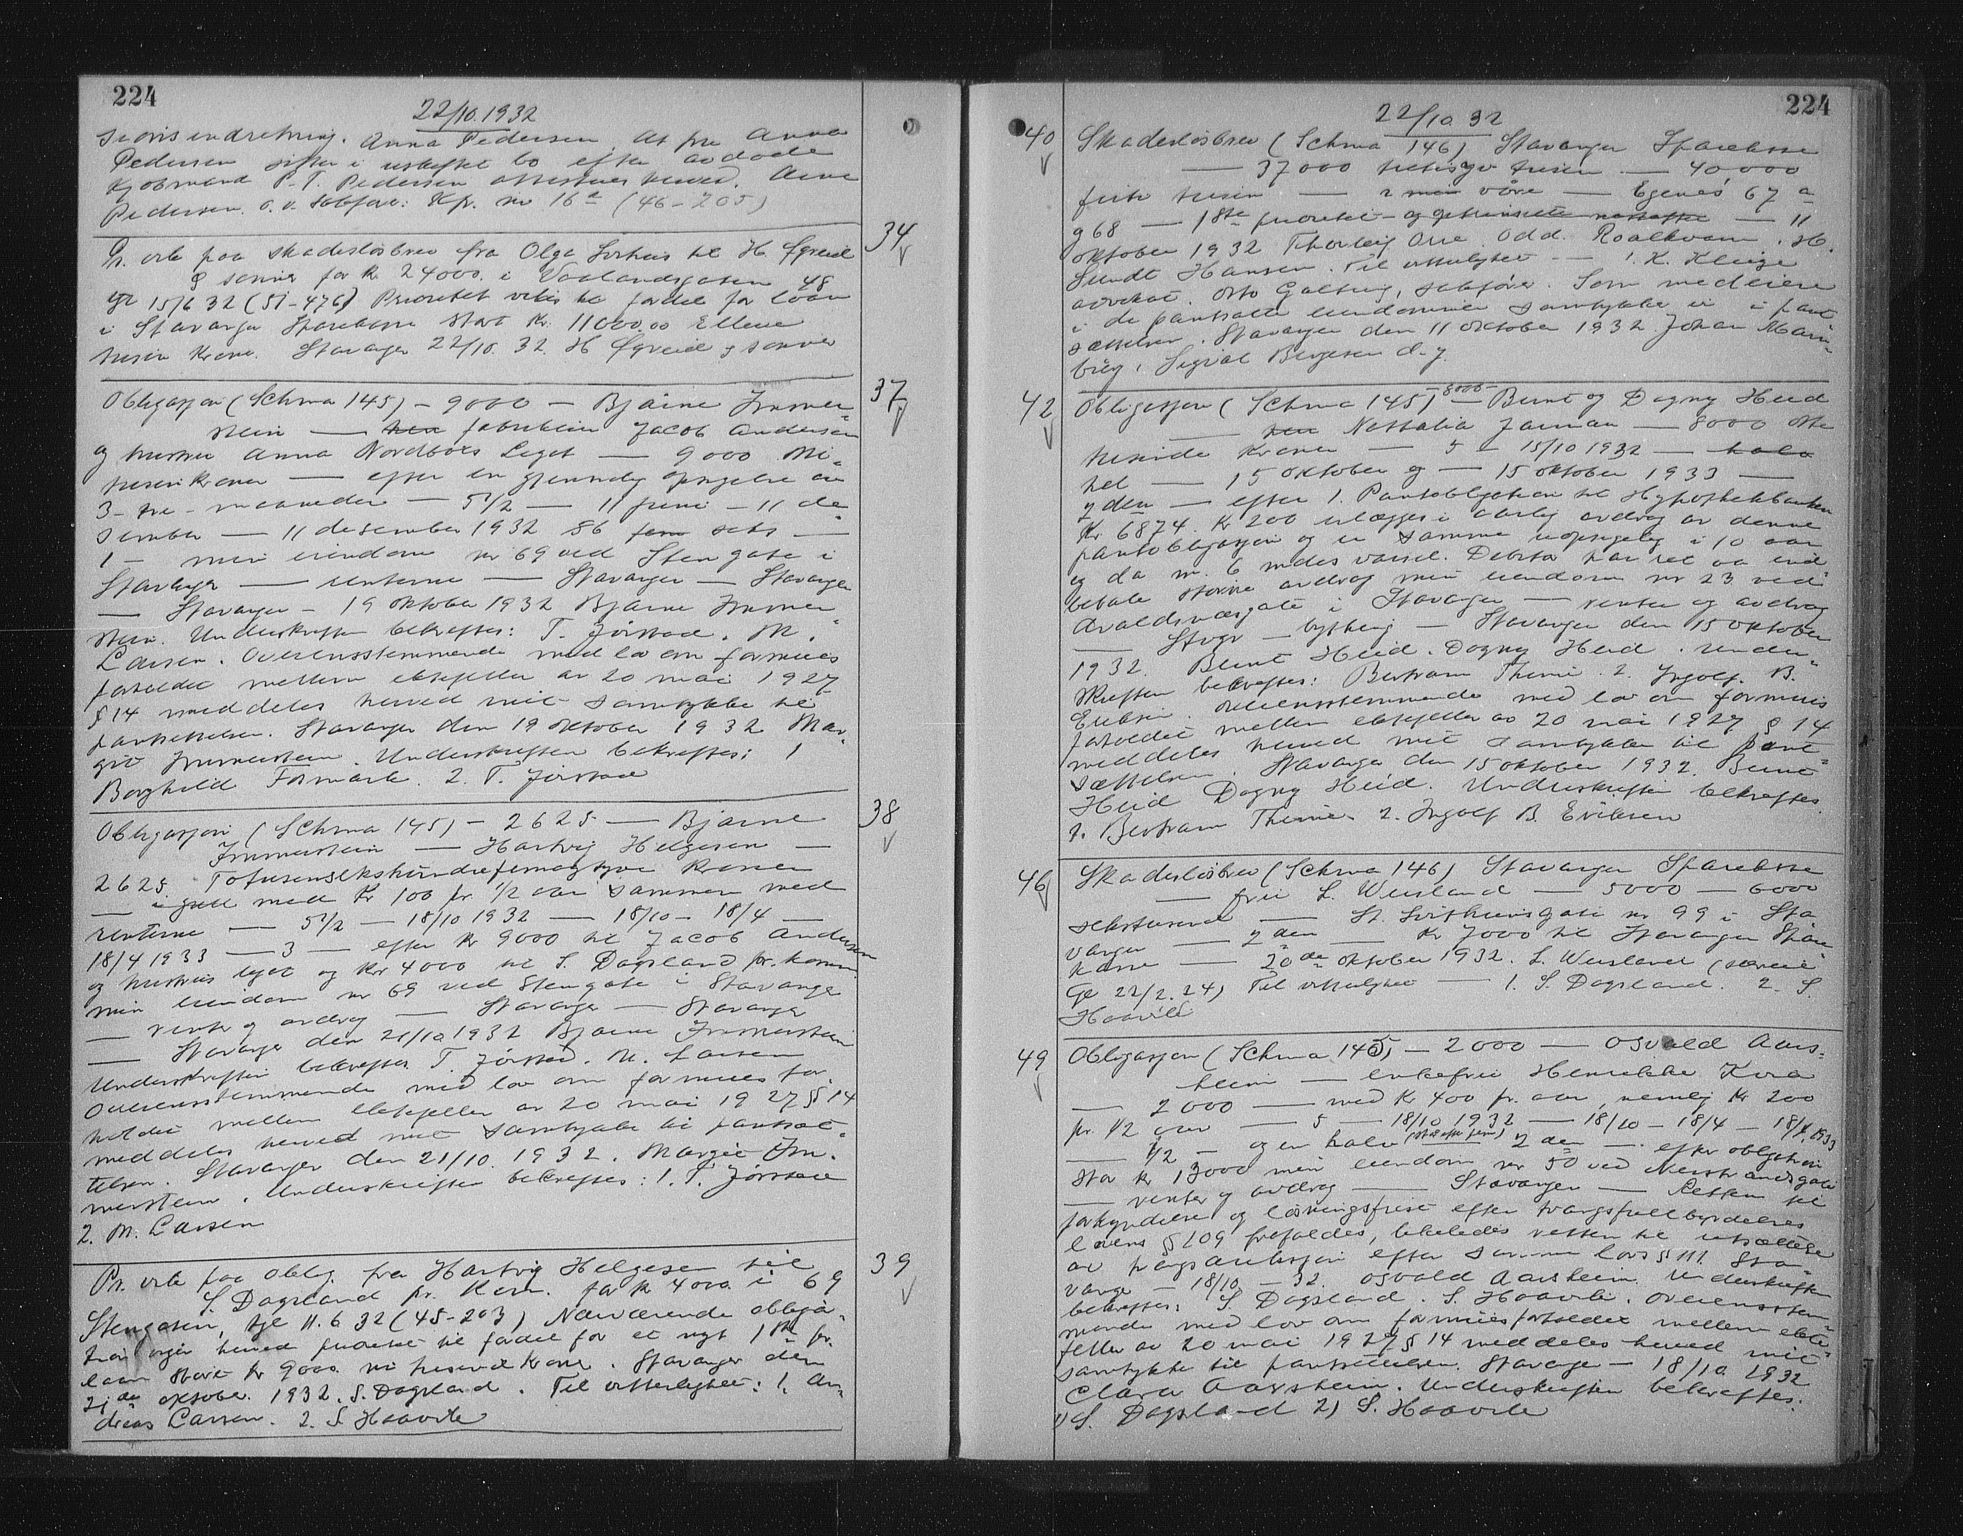 224
22/10.1932
Anna Pedersen. At fru Anna
Pedersen sitter i uskiftet bo efter avdøde
Kjøbmand P. T. Pedersen attesteres herved. Arne
Pedersen. o.r. sakfører. Kfr. nr 16 (46-205)
34
Pr. vik. paa skadesløsbrev fra Olga til H. Øgreid
& sønner for kr 24000. i Vaalandsgaten 48
tgl 15/6 32 (51-476) Prioritet vikes til fordel for laan
i Stavanger Sparekasse stort Kr. 11000,00 Elleve
tusen Kroner. Stavanger 22/10. 32. H Øgreid & sønner
37
Obligasjon (Schma 145) - 9000 - Bjarne Immer-
stein — herr fabrikeier Jacob Andersen
og hustru Anna Nordbøes Legat — 9000 Ni-
tusen kroner — efter en gjensidig opsigelse av
3- tre - maaneder — 5 1/2 — 11 juni - 11 de-
sember — 11 desember 1932 86 fem seks —
1 — min eiendom nr 69 ved Stengate i
Stavanger — renterne — Stavanger — Stavanger
— Stavanger - 19 oktober 1932 Bjarne Immer
stein. Underskriften bekreftes: T. Jørstad. M.
Larsen. Overensstemmende med lov om formues
forholdet mellem ektefeller av 20 mai 1927
§ 14 meddeles herved mit samtykke til
pantsettelsen. Stavanger den 19 oktober 1932 Mar-
git Immerstein. Underskriften bekreftes: 1
Borghild Formark. 2. T. Jørstad
38
Obligasjon (Schma 145) - 2625 — Bjarne
Immerstein — Hartvig Helgesen —
2625 Totusensekshundrefemogtyve kroner
— i gull med Kr 100 pr. 1/2 aar sammen med
renterne — 5 1/2 — 18/10 1932 — 18/10 - 18/4 —
18/4 1933 — 3 — efter Kr 9000 til Jacob Andersen
og hustrus legat og Kr 4000 til S. Dagsland pr. komm
min eiendom nr 69 ved Stengate i Stavanger
— renter og avdrag — Stavanger — Stavanger
— Stavanger den 21/10 1932 Bjarne Immerstein
Underskriften bekreftes T. Jørstad. M. Larsen
Overensstemmende med lov om formues for-
holdet mellem ektefeller av 20 mai 1927 § 14
meddeles herved mit samtykke til pantset-
telsen. Stavanger den 21/10. 1932. Margit Im-
merstein. Underskriften bekreftes: 1. T. Jørstad
2. M. Larsen
39
Pr. vik paa oblig. fra Hartvig Helgesen til
S. Dagsland pr. Kom. for kr 4000. i 69
Stengaten, tgl 11.6 32 (45-203) Nærværende obliga-
sjon viger herved prioritet til fordel for et nyt 1ste pr.
laan stort Kr 9000. ni tusend Kroner. Stavanger den
21de oktober. 1932. S. Dagsland. Til vitterlighet: 1. An-
dreas Larsen. 2. S. Haavik
224
22/10 32
40
Skadesløsbrev (Schma 146) Stavanger Sparekasse
— 37000 trettisyv tusen — 40,000
førti tusen — 2 min vår — Egenes 67 a
og 68 — 1ste prioritet - og getrinsrett — 11
oktober 1932 Thorleif Orre. Odd. Roalkvam. H.
Sundt Hansen. Til vitterlighet — 1. K. Kluge
advokat. Otto Galtung, sakfører. Som medeiere
i de pantsatte eiendommer samtykker vi i pant
sættelsen. Stavanger den 11 oktober 1932. Johan Mari-
Sigval Bergesen d.y.
42
Obligasjon (Schma 145) 8000 — Bernt og Dagny Heid
— herr Nathalia Jarman — 8000 otte
tusinde Kroner — 5 — 15/10 1932 — halv
hel — 15 oktober og — 15 oktober 1933 —
2 den — efter 1. Pantobligation til Hypothekbanken
Kr 6874. Kr 200 erlægges i aarlig avdrag av denne
pantobligasjon og er samme uopsigelig i 10 aar
og da m. 6 mdes varsel. Debitor har ret til ind
betale større avdrag min eiendom nr 23 ved
Avaldsnæsgate i Stavanger — renter og avdrag
— Stvgr — bything — Stavanger den 15 oktober
1932. Bernt Heid. Dagny Heid. Under-
skriften bekreftes: Bertram Thime. 2. Ingolf. B.
Eriksen. Overensstemmende med lov om formues
forholdet mellem ektefeller av 20 mai 1927 § 14
meddeles herved mit samtykke til pant-
sættelsen. Stavanger den 15 oktober 1932. Bernt
Heid Dagny Heid. Underskriften bekreftes
1. Bertram Thime. 2. Ingolf B. Eriksen
46
Skadesløsbrev (Schma 146) Stavanger Sparekasse
— frk L. Weisland — 5000 — 6000
sekstusend — St. Svithunsgate nr 99 i Sta
vanger — 2 den — Kr 7000 til Stavanger Spare
kasse — 20de oktober 1932. L. Weisland (særeie
Tgl 22/2.24) Til vitterlighet — 1. S. Dagsland. 2. S.
Haavik
49
Obligasjon (Schma 145) - 2000 — Osvald Aars-
heim — enkefru Henrikke Kvia
— 2000 — med Kr 400 pr. aar, nemlig Kr 200
pr. 1/2 aar — 5 — 18/10 1932 — 18/10 - 18/4 — 18/4. 1933
— 1/2 — og en halv 2 den — efter obligation
stor Kr 13000 min eiendom nr 50 ved Nerstrandsgate
— renter og avdrag — Stavanger — Retten til
forkyndelse og løsningsfrist efter tvangsfullbyrdelses
lovens § 209 frafaldes, likeledes retten til utsættelse
av tvangsauksjon efter samme lovs § 111. Sta-
vanger - 18/10 - 32. Osvald Aarsheim. Underskriften
bekreftes: S. Dagsland. S. Haavik. Overensstem-
mende med lov om formuesforholdet mellem ekte-
feller av 20 mai 1927 § 14 meddeles herved mit
samtykke til pantsettelsen. Stavanger - 18/10 1932
Clara Aarsheim. Underskriften bekreftes.
1) S. Dagsland 2) S. Haavik